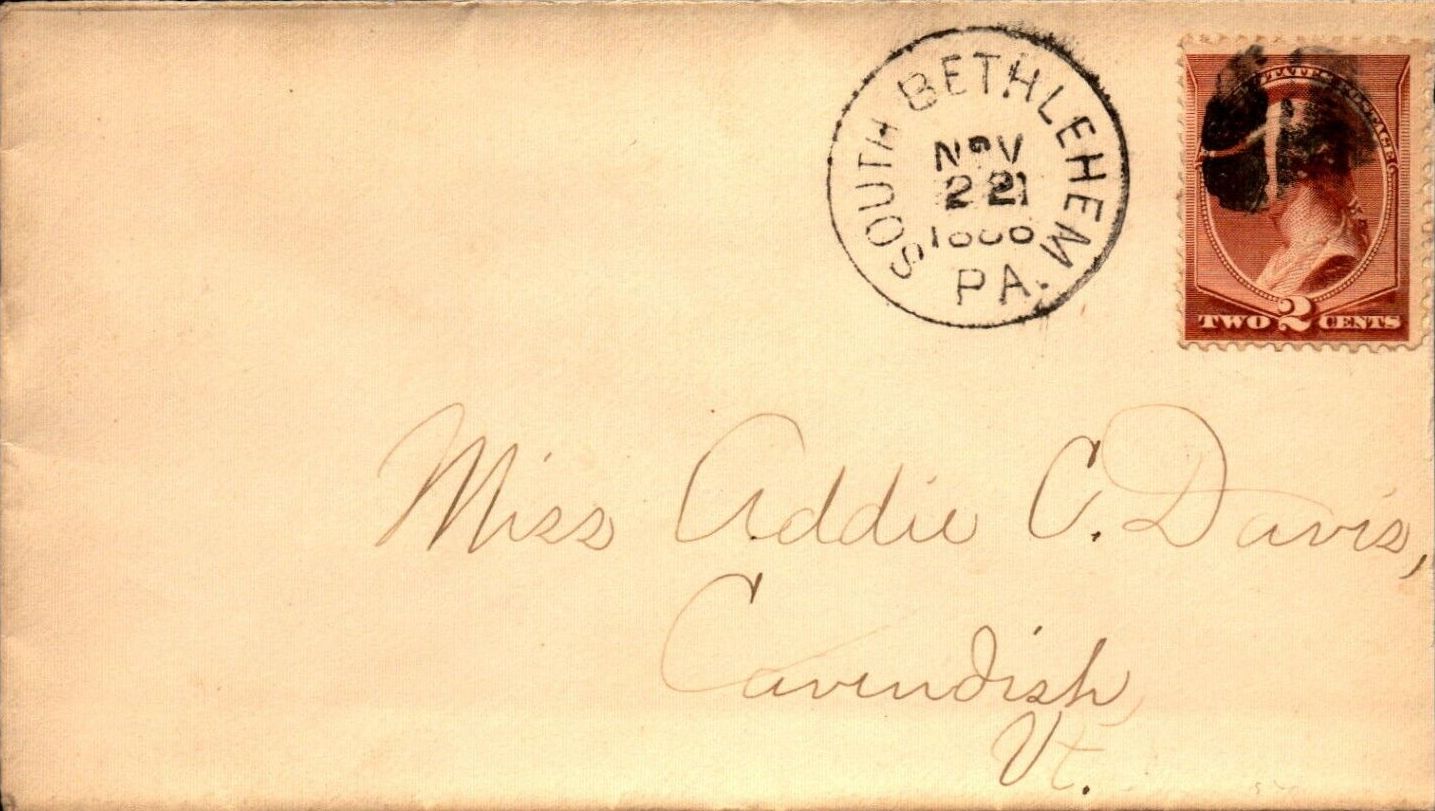 SOUTH BETHLEHEM
NOV
PA.
STATES POSTAGE
TWO 2 CENTS
Miss Addie C. Davis,
Cavendish,
Vt.